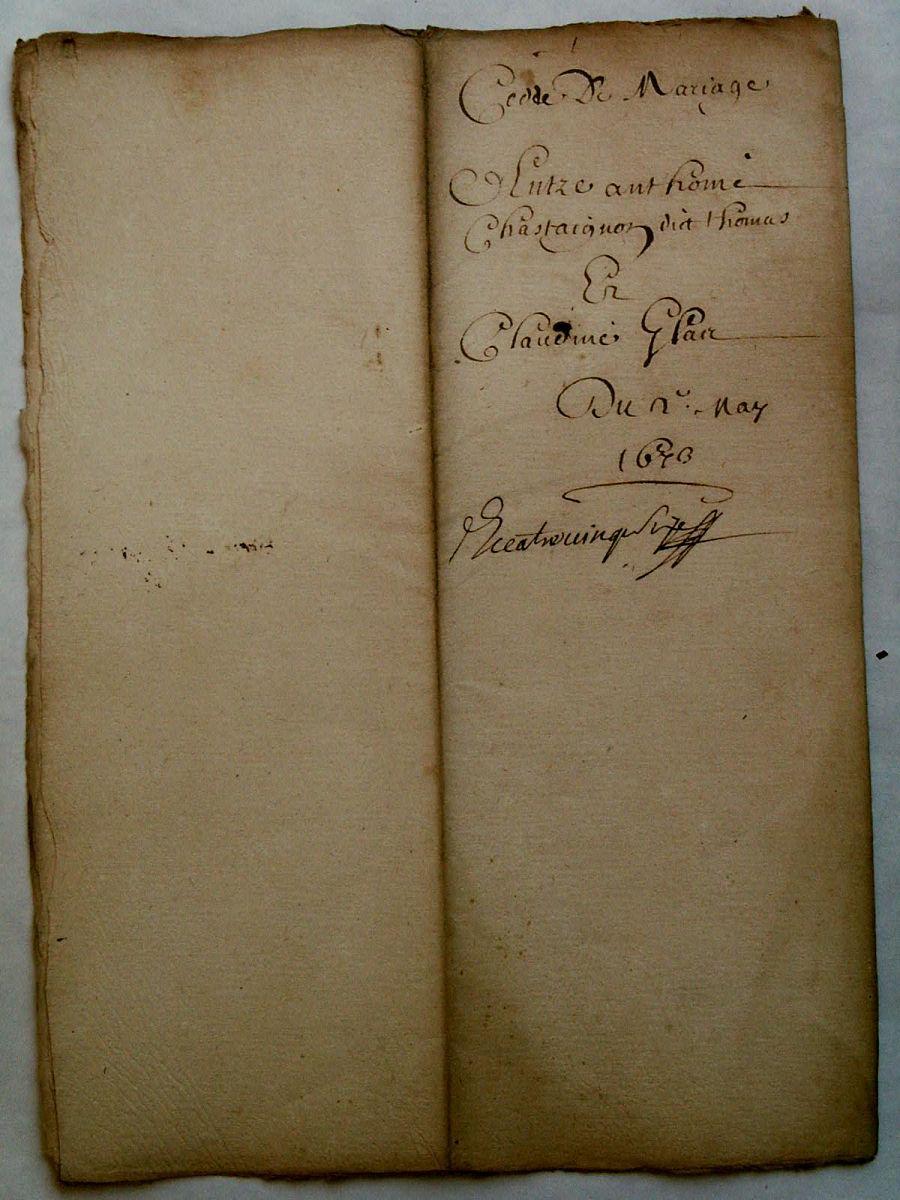 Cedde De Mariage
Entre anthoine
Chastaignon dict thomas
Et
Claudine Glat
Du 2e. May
1673